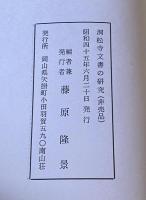 洞松寺文書の研究(非売品)
昭和四十五年六月二十日発行
編者兼
発行者
藤原隆景
発行所 岡山県矢掛町小田羽賀五九〇南山荘